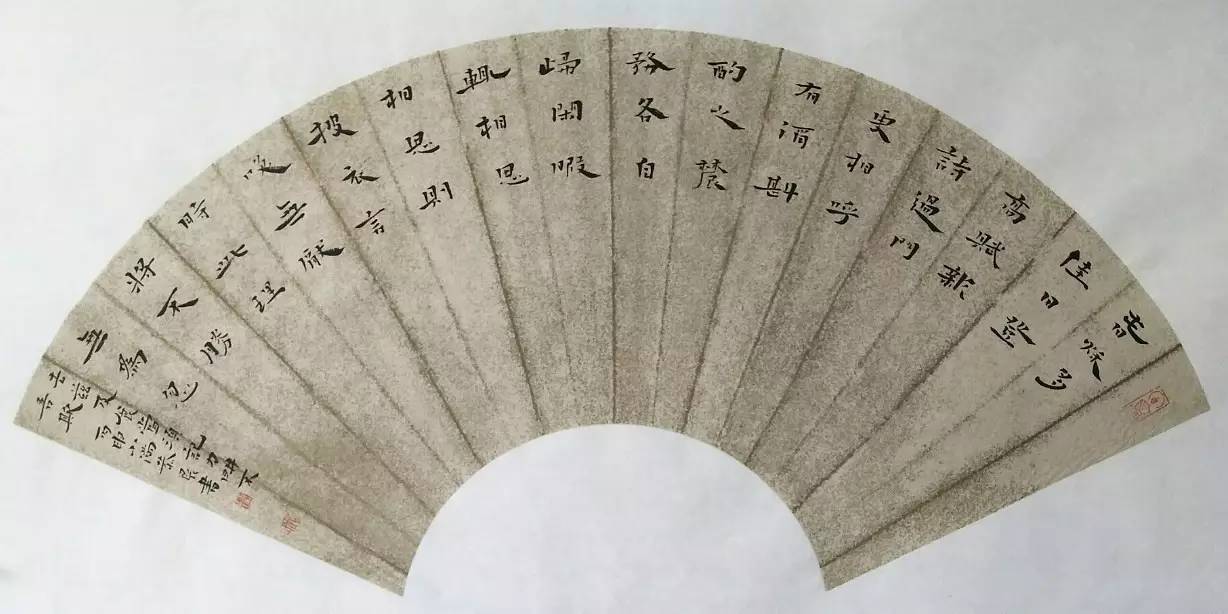 旾秌多
佳日登
高賦新
詩過門
更相呼
有酒斟
酌之農
務各自
歸閑暇
輒相思
相思則
披衣言
咲無厭
時此理
將不勝
無為忽
去茲衣食當須紀力耕不
吾欺 丙申小滿書